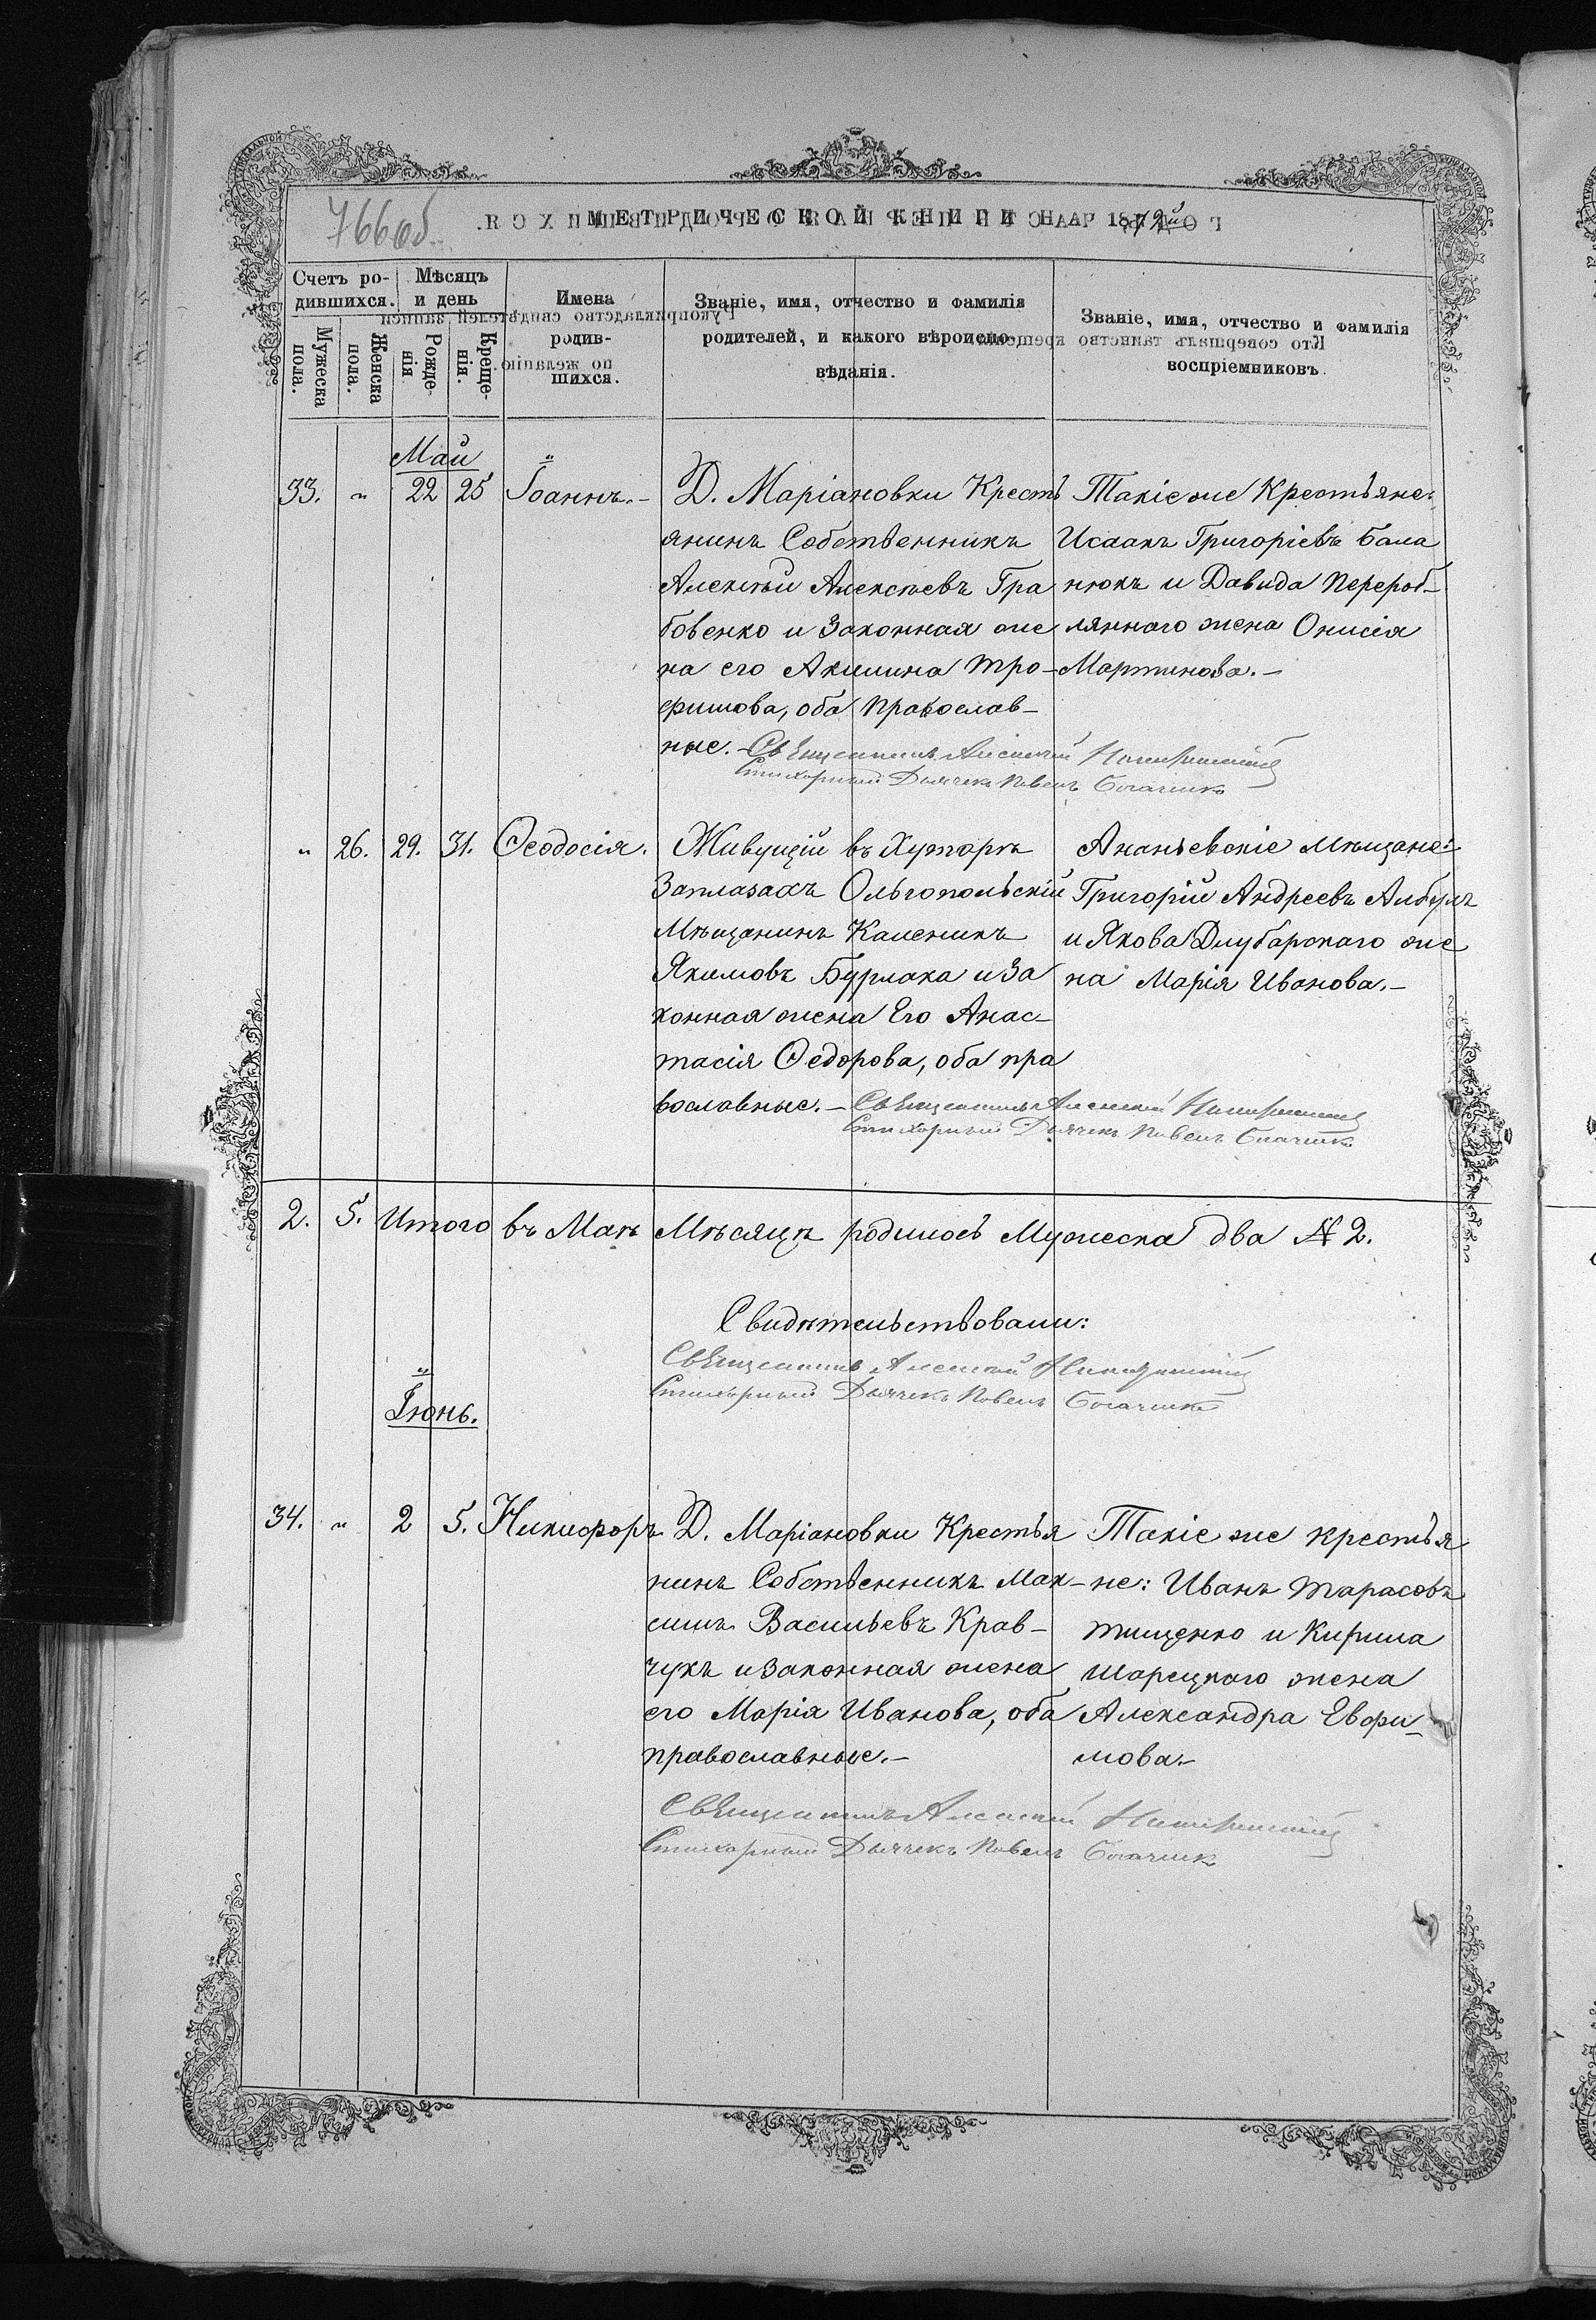 766об
МЕТРИЧЕСКОЙ КНИГИ НА 1872й
Счетъ ро-
дившихся.
Мѣсяцъ
и день
Мужеска
пола.
Женска
пола.
Рожде-
нія
Креще-
нія.
Имена
родив-
шихся.
Званіе, имя, отчество и фамилія
родителей, и какого вѣроиспо-
вѣданія.
Званіе, имя, отчество и фамилія
воспріемниковъ.
Май
33. " 22 25 Іоаннъ.-
Д. Маріановки Кресть
янинъ Собственникъ
Алексѣй Алексѣевъ Гра
бовенко и Законная же
на его Акилина Тро-
фимова, оба Православ-
ные. - Священникъ Алексѣй
Стихарный Дьячекъ Павелъ
Такіе же Крестьяне:
Исаакъ Григоріевъ Бала
нюкъ и Давида Перероб-
лянного жена Онисія
Мартинова.-
" 26. 29. 31. Ѳеодосія.
Живущій въ Хуторѣ
Заплазахъ Ольгопольскій
Мѣщанинъ Каленикъ
Якимовъ Бурлака и За
конная жена Его Анас-
тасія Ѳедорова, оба пра
вославные.- Священникъ Алексѣй
Стихарный Дьячекъ Павелъ
Ананьевскіе Мѣщане:
Григорій Андреевъ Албулъ
и Якова Длубарскаго же
на Марія Иванова.-
2. 5. Итого въ Маѣ Мѣсяцѣ родилось Мужеска два № 2.
Свидѣтельствовали:
Священникъ Алексѣй
Стихарный Дьячекъ Павелъ
Іюнь.
34. " 2 5. Никифоръ
Д. Маріановки Крестья
нинъ Собственникъ Мак-
симъ Васильевъ Крав-
чукъ и законная жена
его Марія Иванова, оба
православные.-
Такіе же крестья
не: Иванъ Тарасовъ
Тищенко и Кирила
Шарецкаго жена
Александра Евфи-
мова.-
Священникъ Алексѣй
Стихарный Дьячекъ Павелъ